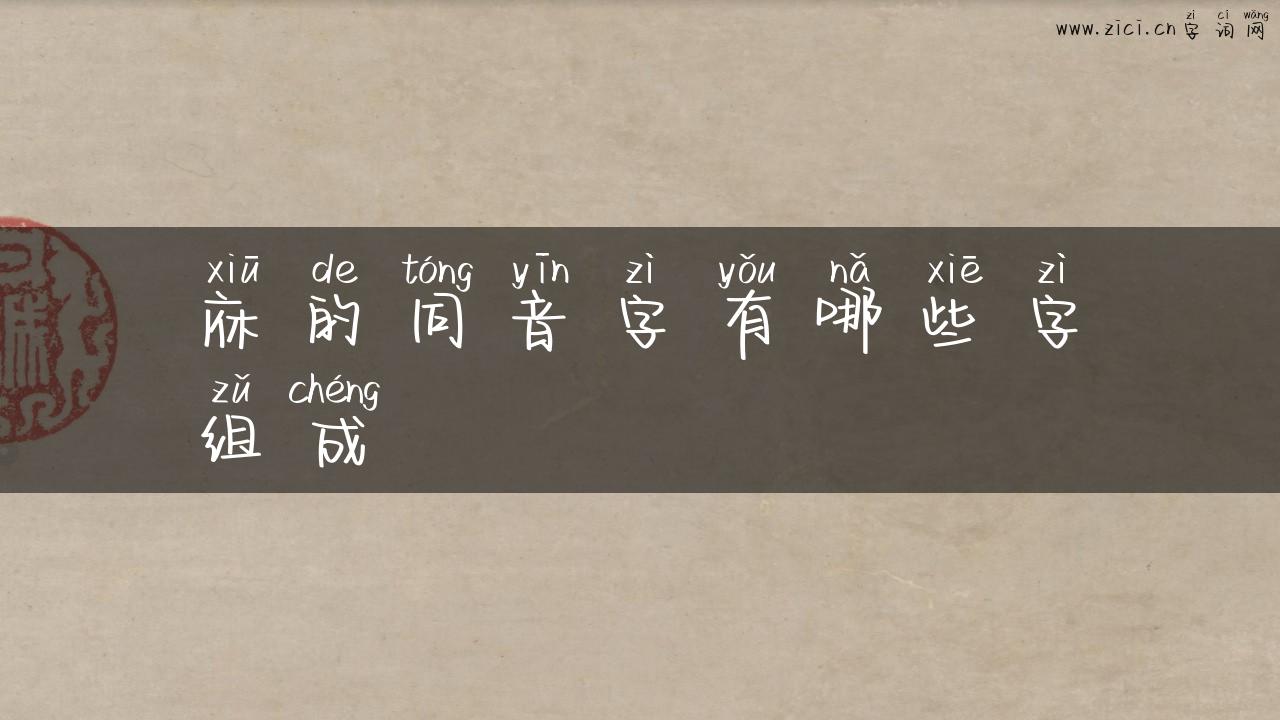 zì cí wǎng
www.zici.cn 字词网
xiū de tóng yīn zì yǒu nǎ xiē zì
庥的同音字有哪些字
zǔ chéng
组成